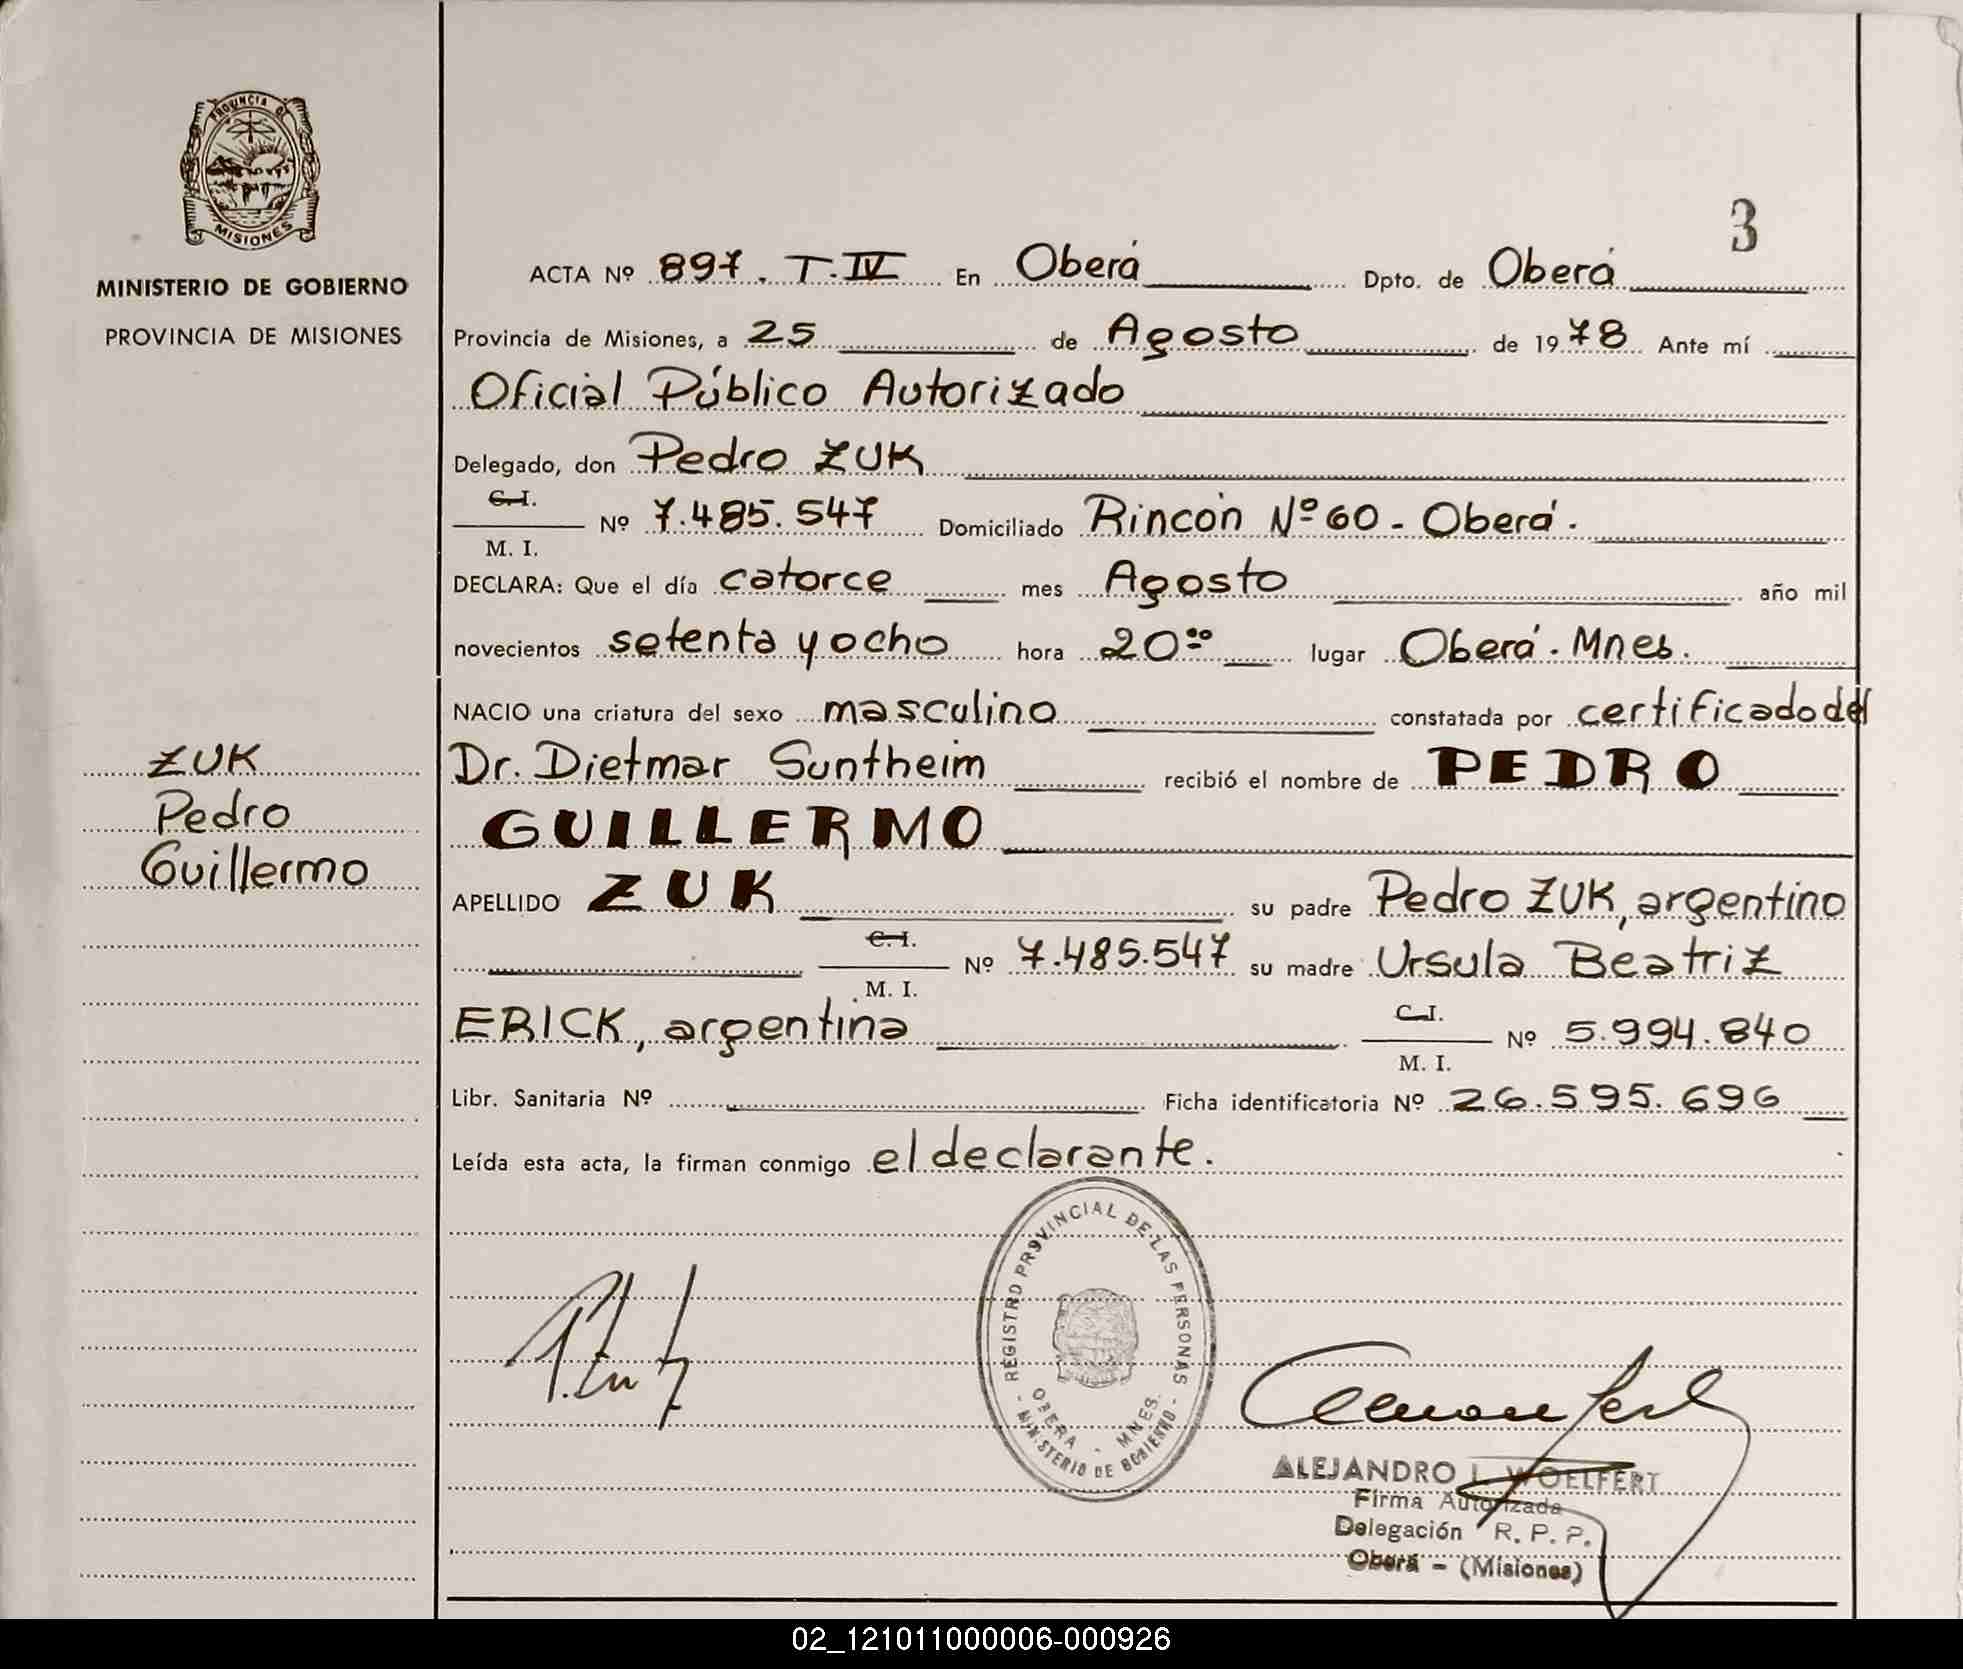 PROVINCIA DE
MISIONES
MINISTERIO DE GOBIERNO
PROVINCIA DE MISIONES
ZUK
Pedro
Guillermo
3
ACTA Nº 897. T. IV En Oberá Dpto. de Oberá
Provincia de Misiones, a 25 de Agosto de 1978 Ante mí
Oficial Público Autorizado
Delegado, don Pedro ZUK
C. I.
M. I. Nº 7.485.547 Domiciliado Rincón Nº 60 - Oberá.
DECLARA: Que el día catorce mes Agosto año mil
novecientos setenta y ocho hora 20⁰⁰ lugar Oberá. Mnes.
NACIO una criatura del sexo masculino constatada por certificado del
Dr. Dietmar Suntheim recibió el nombre de PEDRO
GUILLERMO
APELLIDO ZUK su padre Pedro ZUK, argentino
C. I.
M. I. Nº 7.485.547 su madre Ursula Beatriz
ERICK, argentina C. I.
M. I. Nº 5.994.840
Libr. Sanitaria Nº Ficha identificatoria Nº 26.595.696
Leída esta acta, la firman conmigo el declarante.
- REGISTRO PROVINCIAL DE LAS PERSONAS -
OBERA - MNES.
MINISTERIO DE GOBIERNO
ALEJANDRO L. WOELFERT
Firma Autorizada
Delegación R. P. P.
Oberá - (Misiones)
02_121011000006-000926